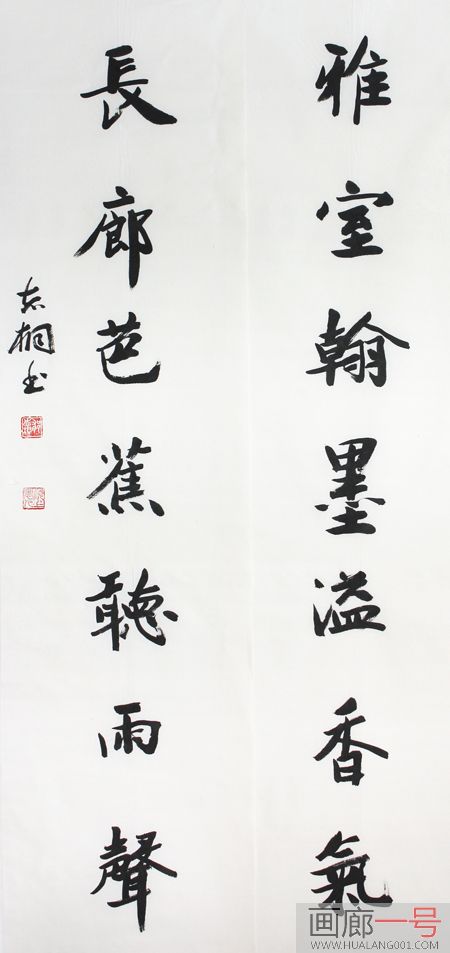 雅室翰墨溢香氣
長廊芭蕉聽雨聲
志桐书
画廊一号
WWW.HUALANG001.COM